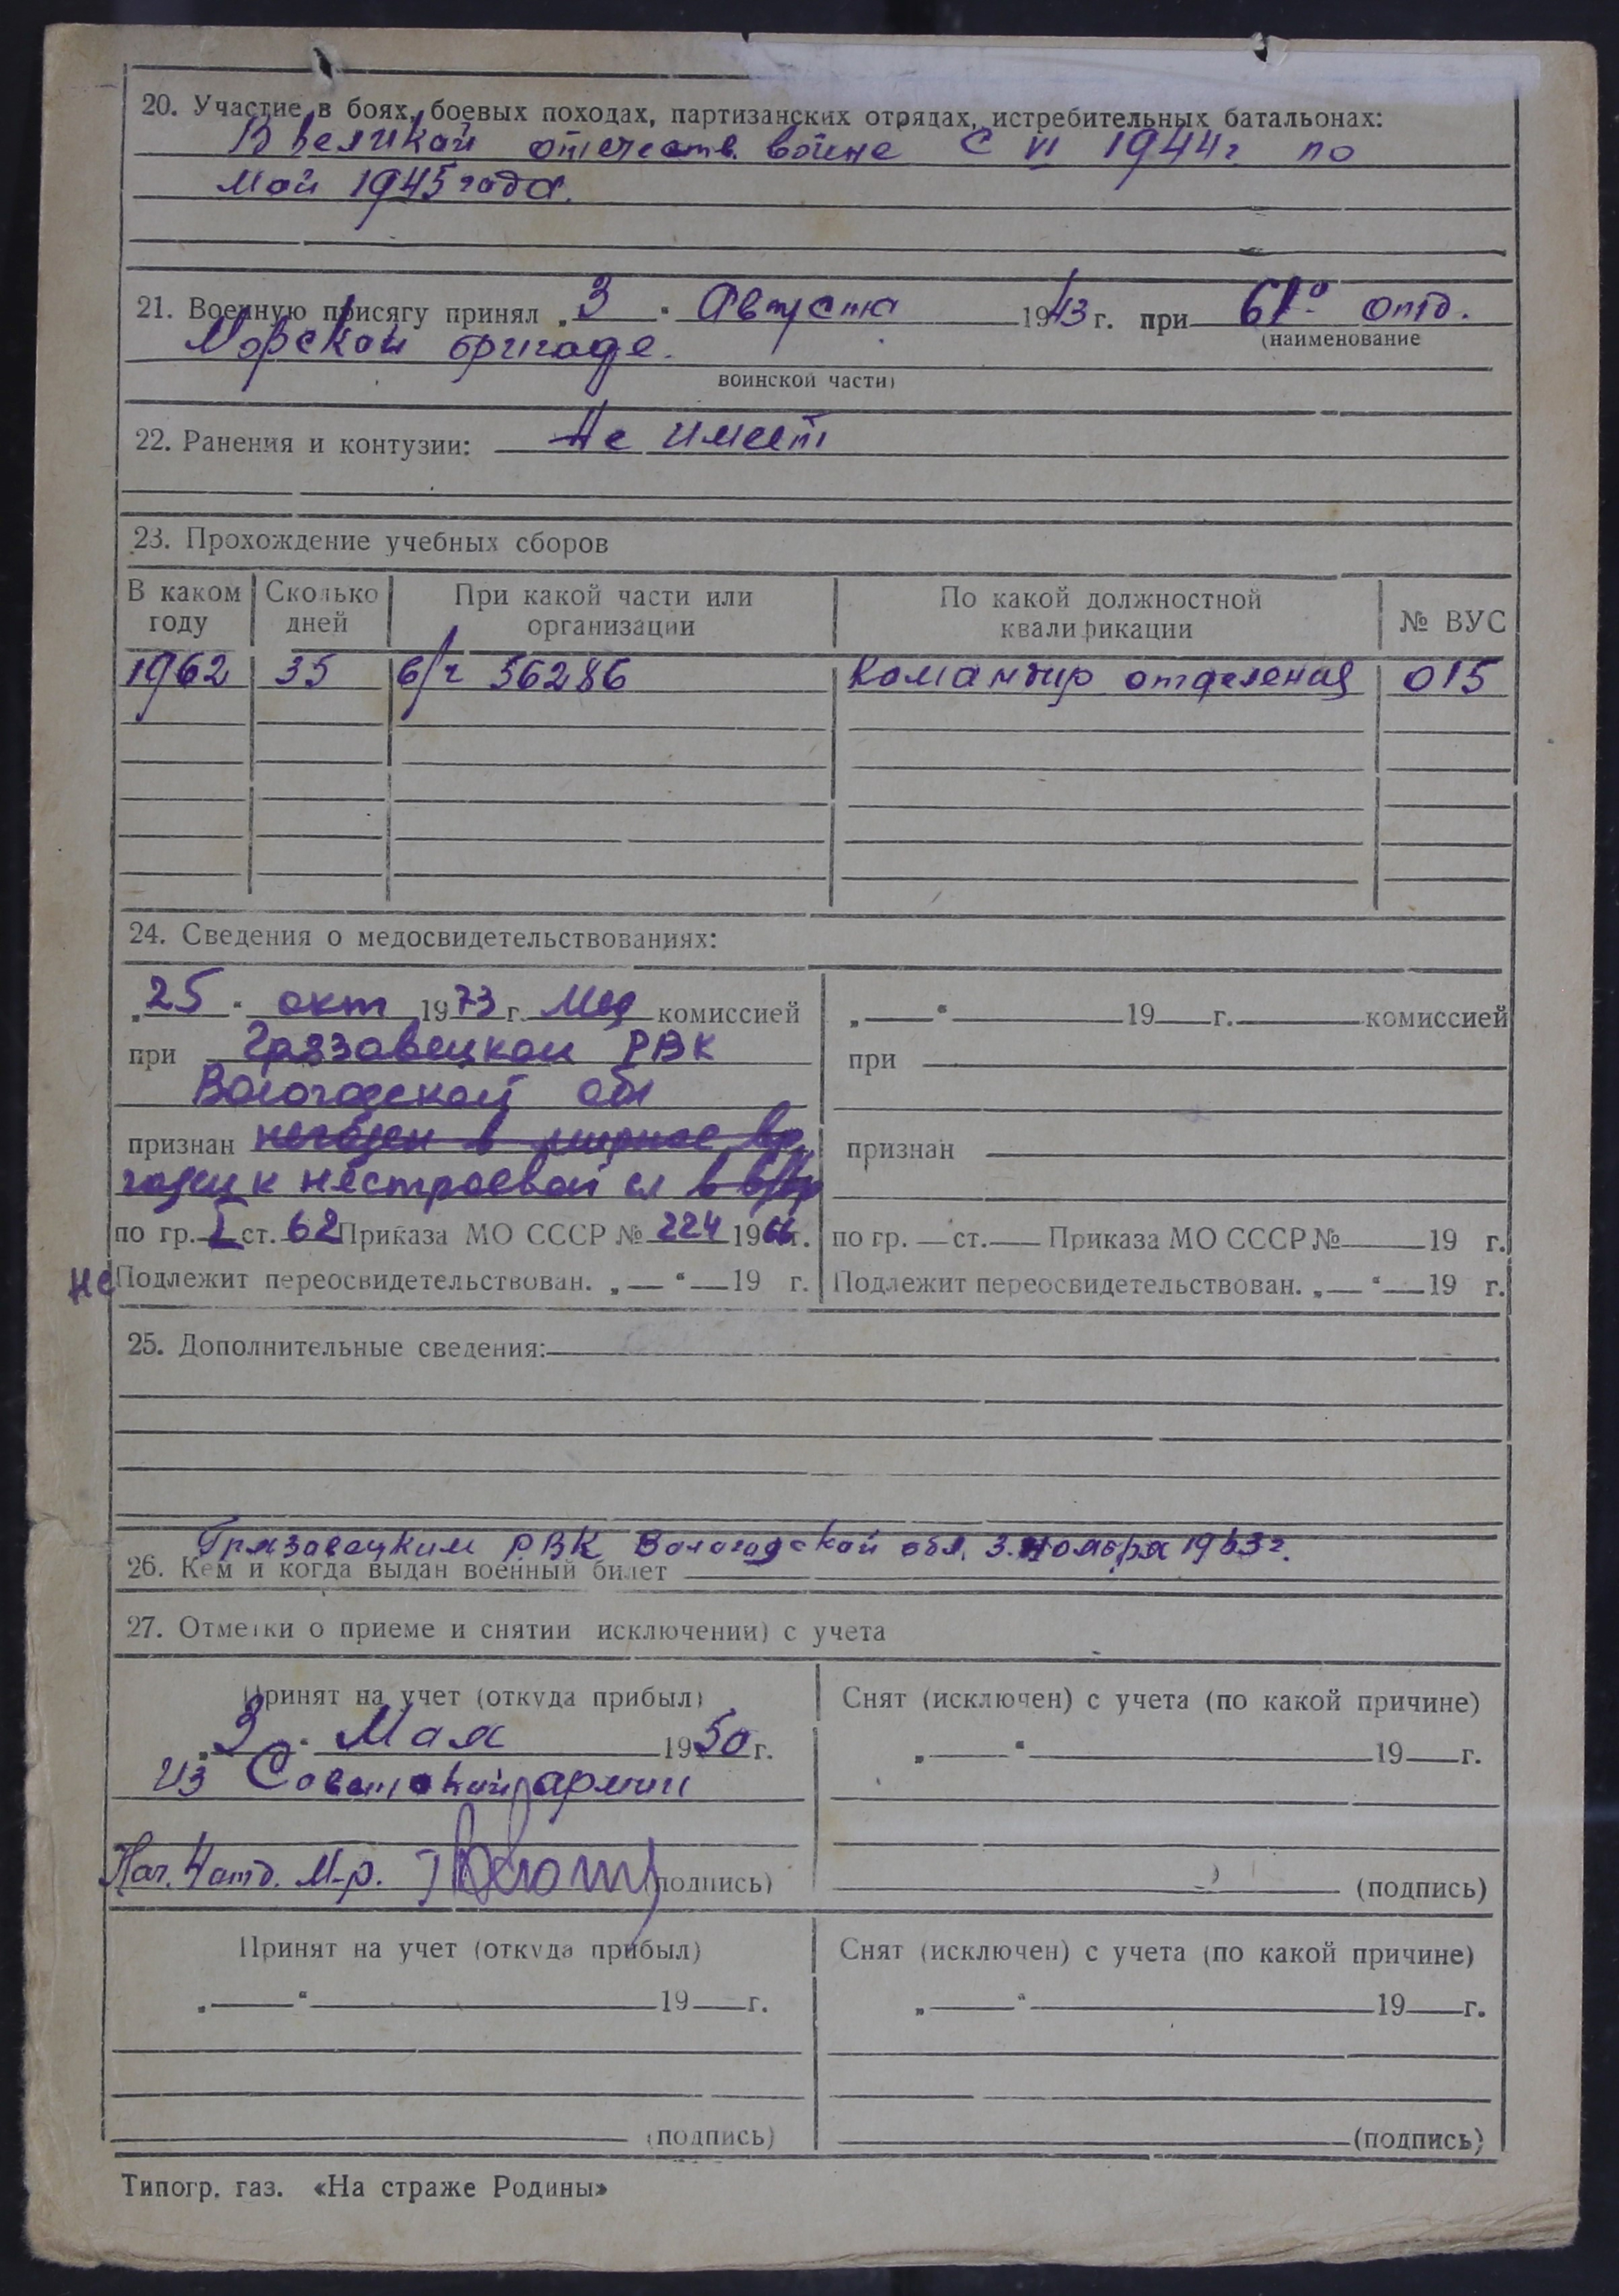 20. Участие в боях, боевых походах, партизанских отрядах, истребительных батальонах:
В великой отечеств. войне с VI 1944 г по
май 1945 года.
21. Военную присягу принял „3“ Августа 1943 г. при 61° отд.
(наименование
Морской бригаде.
воинской части)
22. Ранения и контузии: Не имеет
23. Прохождение учебных сборов
В каком году Сколько дней При какой части или организации По какой должностной квалификации № ВУС
1962 35 в/ч 56286 Командир отделения 015
24. Сведения о медосвидетельствованиях:
„25“ окт 1973 г. Мед комиссией
при Грязовецком РВК
Вологодской обл
признан негоден в мирное вр
годен к нестроевой сл в в/вр
по гр. I ст. 62 Приказа МО СССР № 224 1966 г.
не Подлежит переосвидетельствован. „ “ 19 г.
„ “ 19 г. комиссией
при
признан
по гр. ст. Приказа МО СССР № 19 г.
Подлежит переосвидетельствован. „ “ 19 г.
25. Дополнительные сведения:
Грязовецким РВК Вологодской обл. 3. ноября 1963 г.
26. Кем и когда выдан военный билет
27. Отметки о приеме и снятии исключении) с учета
Принят на учет (откуда прибыл)
„3“ Мая 1950 г.
из Советской армии
Нач. 4 отд. М-р. (подпись)
Снят (исключен) с учета (по какой причине)
„ “ 19 г.
(подпись)
Принят на учет (откуда прибыл)
„ “ 19 г.
(подпись)
Снят (исключен) с учета (по какой причине)
„ “ 19 г.
(подпись)
Типогр. газ. «На страже Родины»